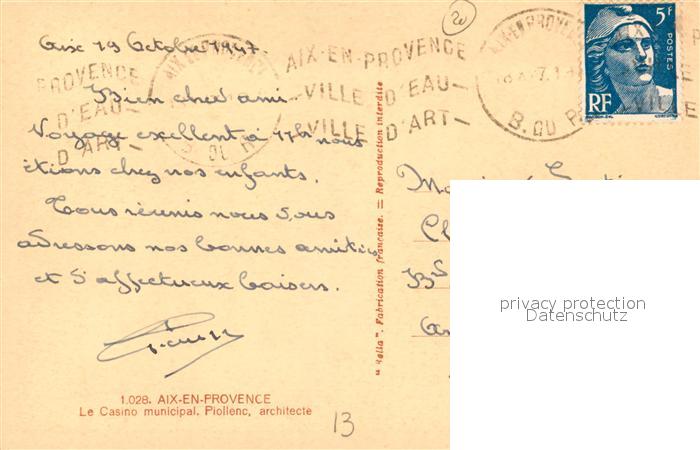 Aix 19 Octobre 1947.
Bien cher ami
Voyage excellent à 17h nous
étions chez nos enfants.
Tous réunis nous vous
adressons nos bonnes amitiés
et d'affectueux baisers.
1.028. AIX-EN-PROVENCE
Le Casino municipal. Piollenc, architecte
13
"Bella". Fabrication française. — Reproduction interdite
20
AIX-EN-PROVENCE
VILLE D'EAU
VILLE D'ART
PROVENCE
D'EAU
D'ART
B. DU R
5F
POSTES
RF
AIX
VILLE
privacy protection
Datenschutz